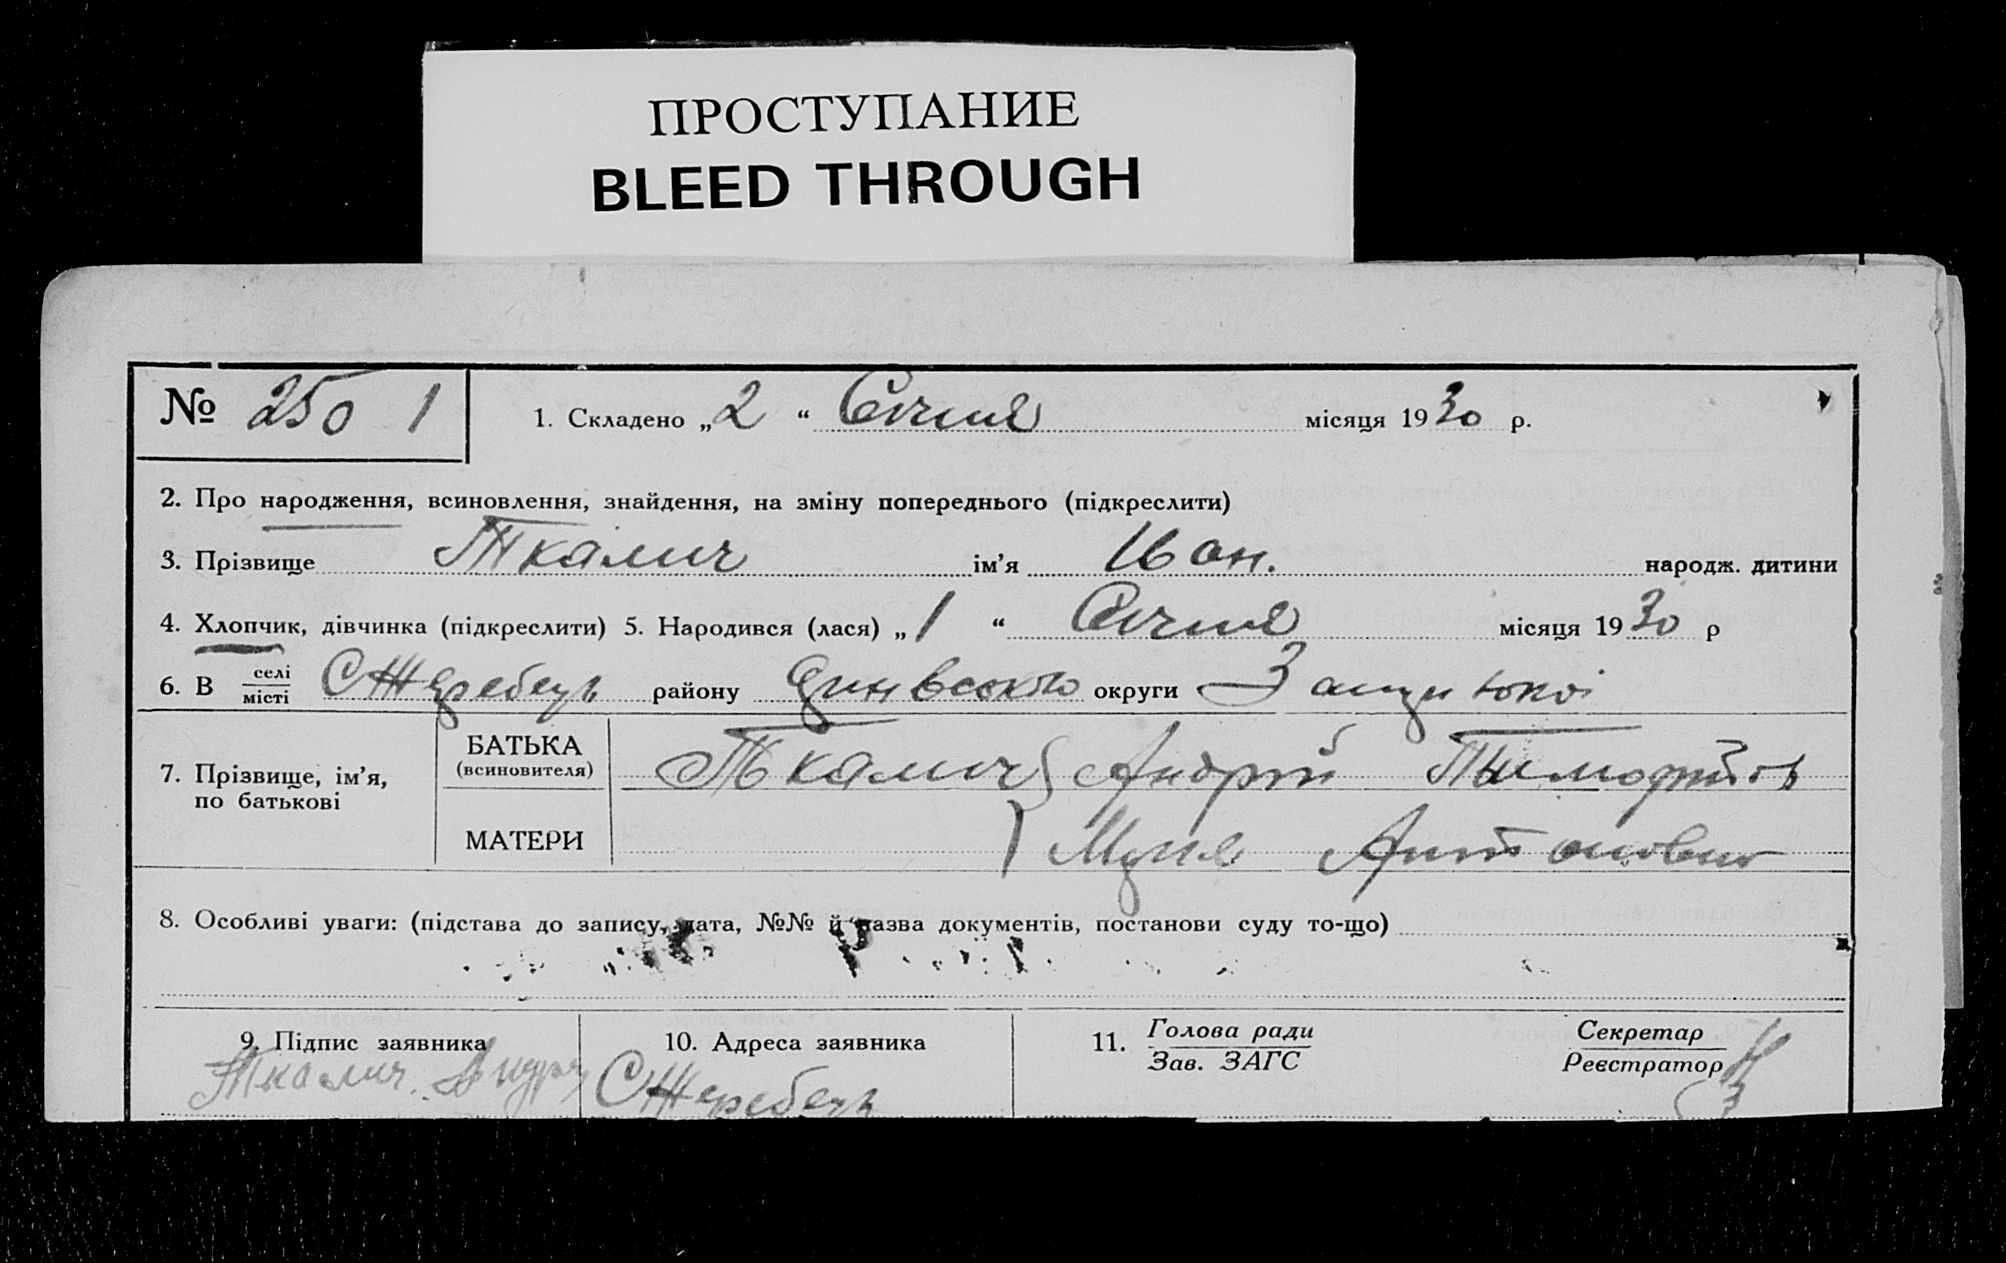 ПРОСТУПАНИЕ
BLEED THROUGH
№ 250 1
1. Складено „2“ Січня місяця 1930 р.
2. Про народження, всиновлення, знайдення, на зміну попереднього (підкреслити)
3. Прізвище Ткалич ім’я Иван. народж. дитини
4. Хлопчик, дівчинка (підкреслити) 5. Народився (лася) „1“ Січня місяця 1930 р
6. В селі місті С Жеребець району округи
7. Прізвище, ім’я, по батькові
БАТЬКА (всиновителя) Ткалич Андрій Тимофійов
МАТЕРИ Антоновна
8. Особливі уваги: (підстава до запису, дата, №№ й назва документів, постанови суду то-що)
9. Підпис заявника
Ткалич
10. Адреса заявника
С Жеребець
11. Голова ради
Зав. ЗАГС
Секретар
Реєстратор